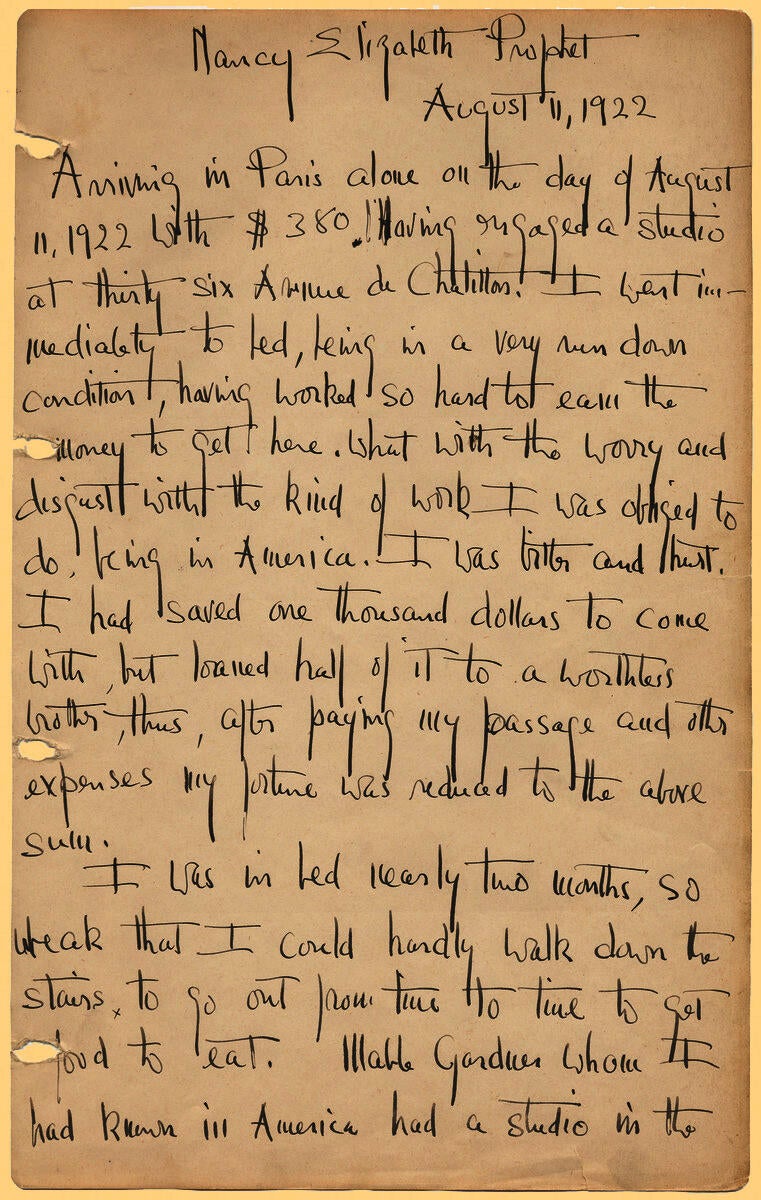 Nancy Elizabeth Prophet
August 11, 1922
Arriving in Paris alone on the day of August
11, 1922 with $380. Having engaged a studio
at thirty six Avenue de Chatillon. I went im-
mediately to bed, being in a very run down
condition, having worked so hard to earn the
money to get here. What with the worry and
disgust with the kind of work I was obliged to
do, being in America. I was bitter and hurt.
I had saved one thousand dollars to come
with, but loaned half of it to a worthless
brother, thus, after paying my passage and other
expenses my fortune was reduced to the above
sum.
I was in bed nearly two months, so
weak that I could hardly walk down the
stairs, to go out from time to time to get
food to eat. Mable Gardner whom I
had known in America had a studio in the